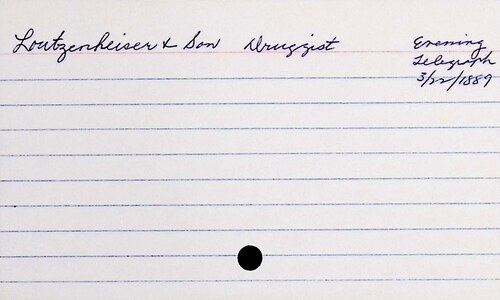 Loutzenheiser & Son Druggist Evening
Telegraph
3/22/1889